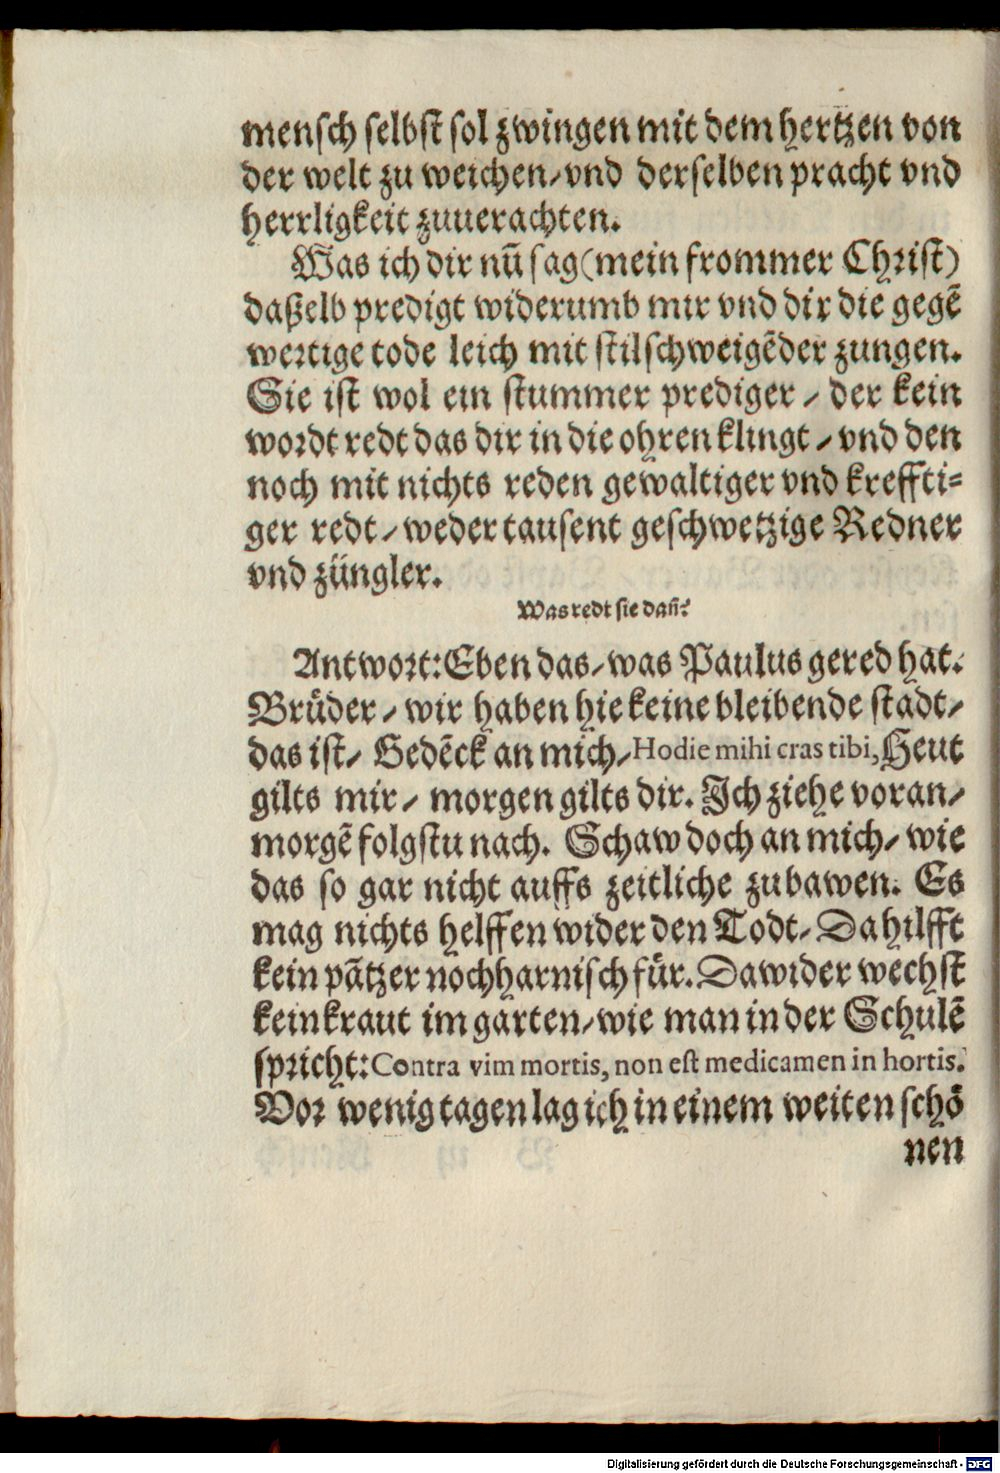 mensch selbst sol zwingen mit dem hertzen von
der welt zu weichen/vnd derselben pracht vnd
herrligkeit zuuerachten.
Was ich dir nū sag(mein frommer Christ)
daßelb predigt widerumb mir vnd dir die gegē
wertige tode leich mit stilschweigēder zungen.
Sie ist wol ein stummer prediger / der kein
wordt redt das dir in die ohren klingt / vnd den
noch mit nichts reden gewaltiger vnd kreffti⸗
ger redt / weder tausent geschwetzige Redner
vnd züngler.
Was redt sie dañ?
Antwort: Eben das/was Paulus gered hat.
Brüder / wir haben hie keine bleibende stadt/
das ist/ Gedēck an mich/ Hodie mihi cras tibi, Heut
gilts mir / morgen gilts dir. Ich ziehe voran/
morgē folgstu nach. Schaw doch an mich/ wie
das so gar nicht auffs zeitliche zubawen. Es
mag nichts helffen wider den Todt/ Da hilfft
kein pātzer noch harnisch für. Dawider wechst
kein kraut im garten/wie man in der Schulē
spricht: Contra vim mortis, non est medicamen in hortis.
Vor wenig tagen lag ich in einem weiten schö
nen
Digitalisierung gefördert durch die Deutsche Forschungsgemeinschaft - DFG